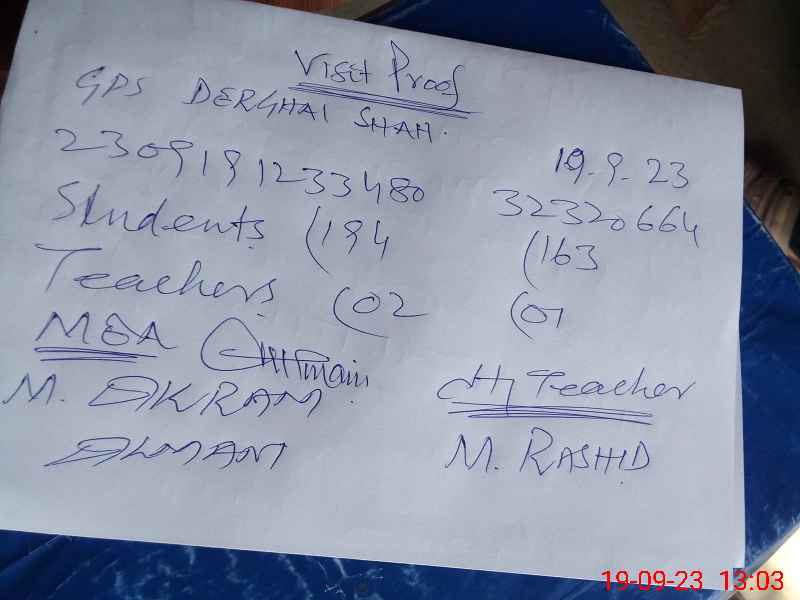 Visit Proof
GPS DERGHAI SHAH.
19-9-23
2309191233480 32320664
Students (194 (163
Teachers (02 (01
MEA
M. AKRAM
ALMANI
Teacher
M. RASHID
19-09-23 13:03